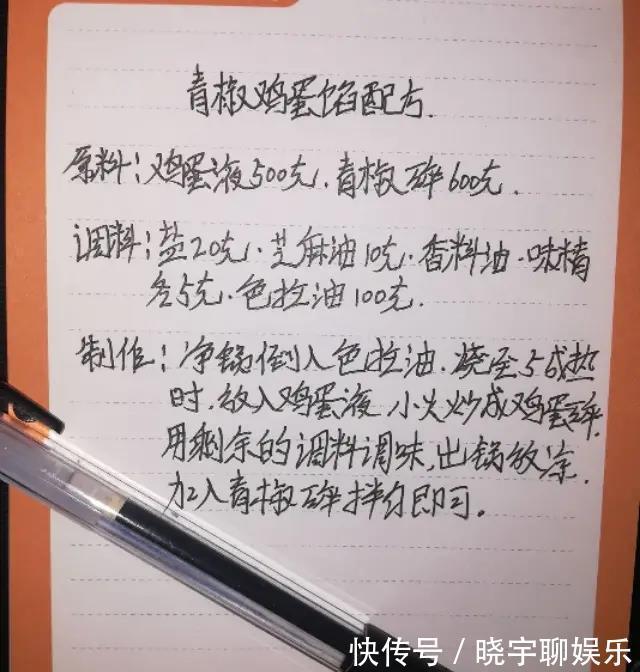 青椒鸡蛋馅配方.
原料:鸡蛋液500克.青椒碎600克.
调料:盐20克.芝麻油10克.香料油.味精
各5克.色拉油100克.
制作:净锅倒入色拉油.烧至5成热
时.放入鸡蛋液 小火炒成鸡蛋碎.
用剩余的调料调味,出锅放凉.
加入青椒碎拌匀即可。
快传号/晓宇聊娱乐